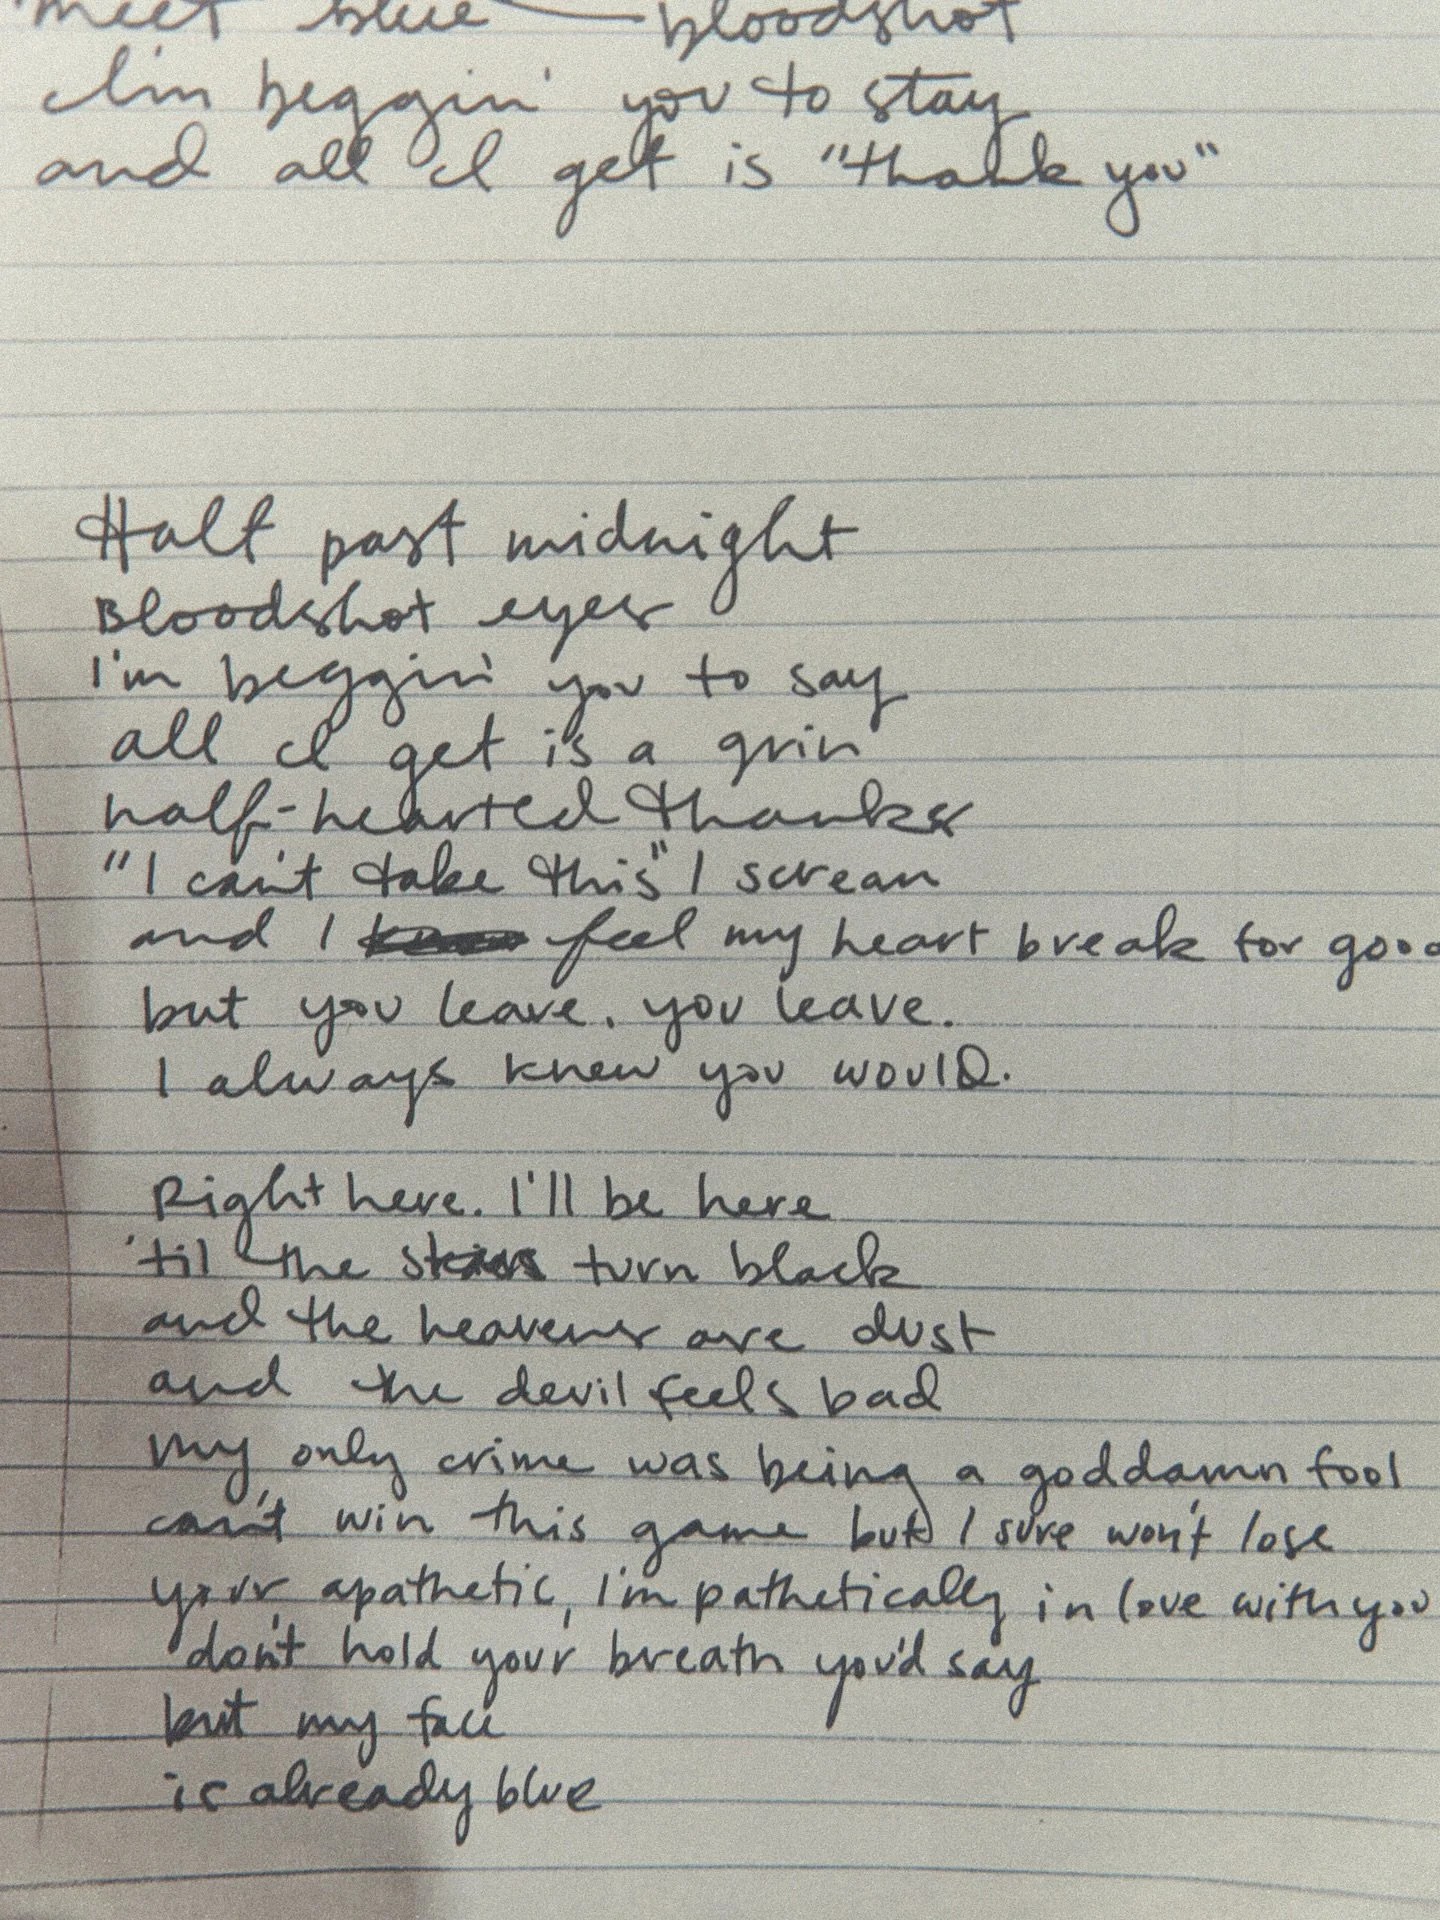 meet blue — bloodshot
I'm beggin' you to stay
and all I get is "thank you"
Half past midnight
Bloodshot eyes
I'm beggin' you to say
all I get is a grin
half-hearted thanks
"I can't take this" I scream
and I feel my heart break for good
but you leave. you leave.
I always knew you would.
Right here. I'll be here
'til the turn black
and the heavens are dust
and the devil feels bad
my only crime was being a goddamn fool
can't win this game but I sure won't lose
your apathetic, I'm pathetically in love with you
don't hold your breath you'd say
but my face
is already blue